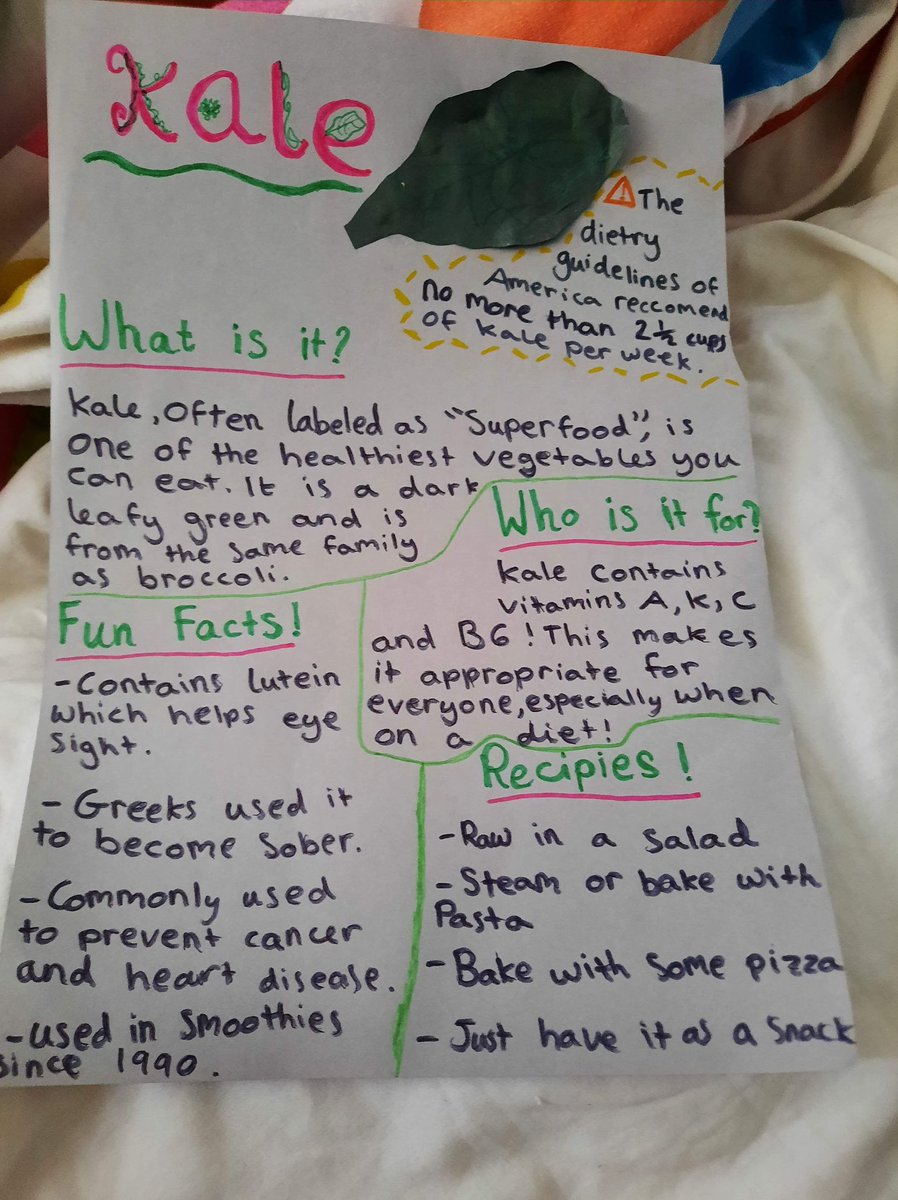 Kale
⚠The
dietry
guidelines of
America reccomend
no more than 2½ cups
of kale per week.
What is it?
Kale, often labeled as "Superfood", is
one of the healthiest vegetables you
can eat. It is a dark
leafy green and is
from the same family
as broccoli.
Who is it for?
Kale contains
vitamins A, K, C
and B6! This makes
it appropriate for
everyone, especially when
on a diet!
Fun Facts!
-Contains lutein
which helps eye
sight.
-Greeks used it
to become sober.
-Commonly used
to prevent cancer
and heart disease.
-used in smoothies
since 1990.
Recipies!
-Raw in a salad
-Steam or bake with
Pasta
-Bake with some pizza
-Just have it as a snack